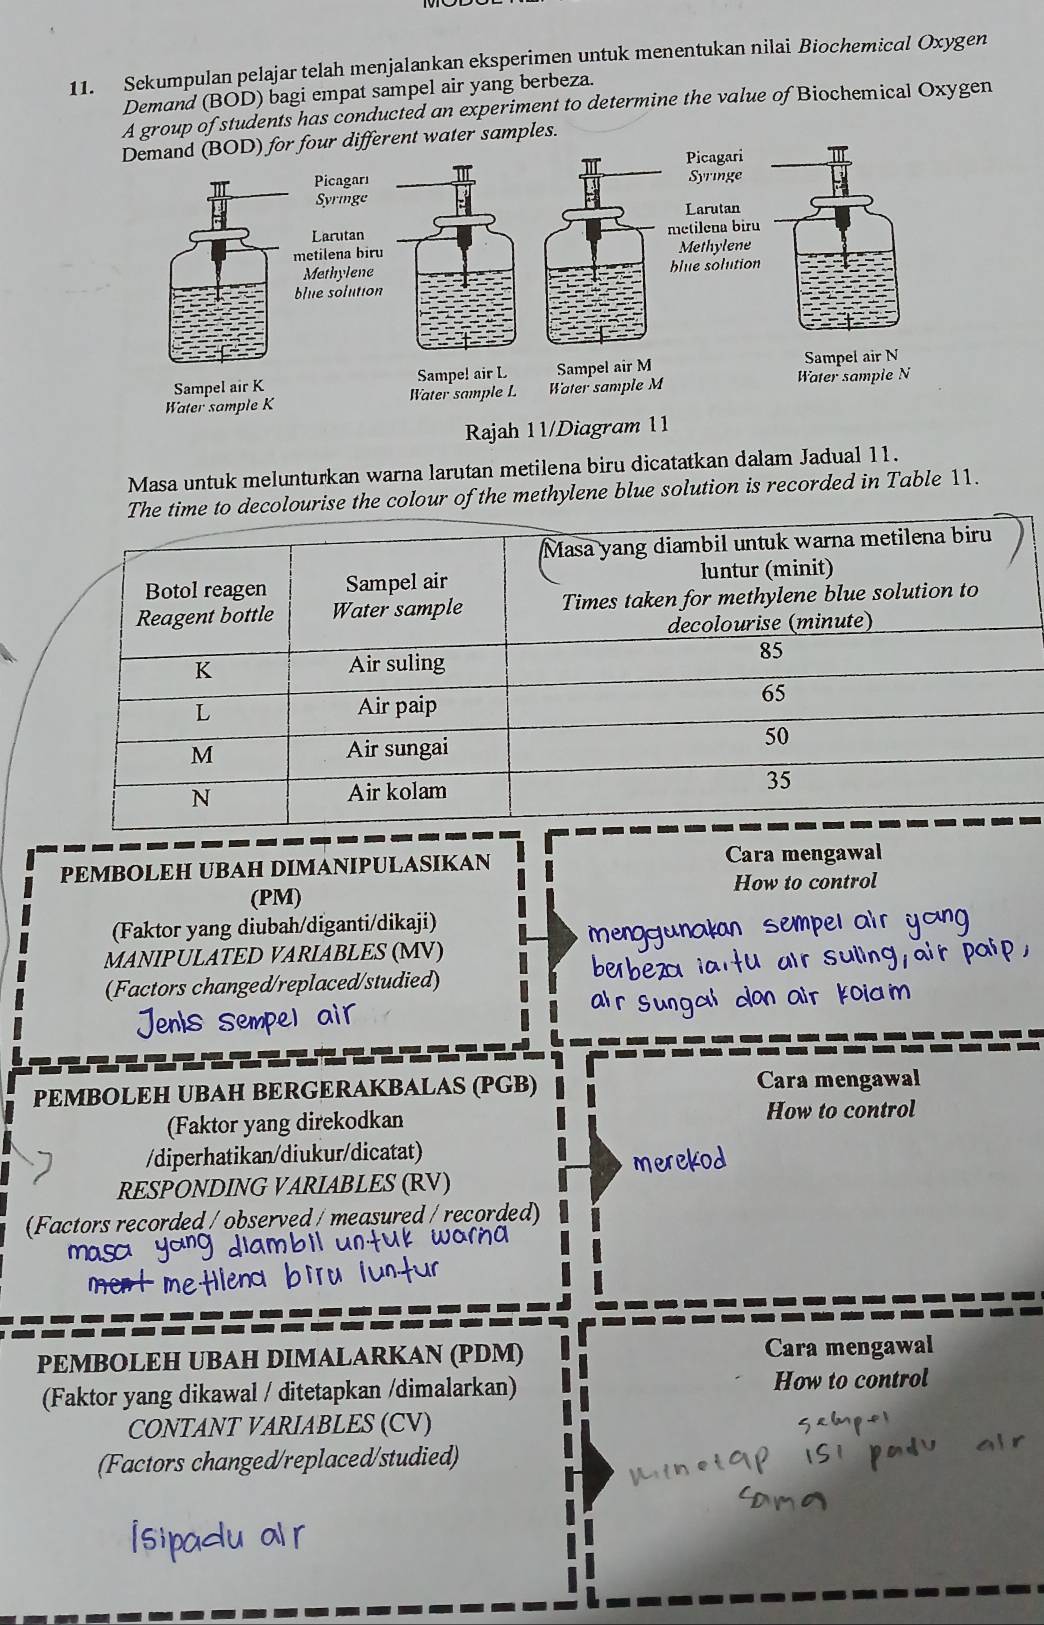 11. Sekumpulan pelajar telah menjalankan eksperimen untuk menentukan nilai Biochemical Oxygen
Demand (BOD) bagi empat sampel air yang berbeza.
A group of students has conducted an experiment to determine the value of Biochemical Oxygen
Demand (BOD) for four different water samples.
Picagari
Syringe
Larutan
metilena biru
Methylene
blue solution
Picagari
Syringe
Larutan
metilena biru
Methylene
blue solution
Sampel air K
Water sample K
Sampel air L
Water sample L
Sampel air M
Water sample M
Sampel air N
Water sample N
Rajah 11/Diagram 11
Masa untuk melunturkan warna larutan metilena biru dicatatkan dalam Jadual 11.
The time to decolourise the colour of the methylene blue solution is recorded in Table 11.
Botol reagen
Reagent bottle
Sampel air
Water sample
Masa yang diambil untuk warna metilena biru
luntur (minit)
Times taken for methylene blue solution to
decolourise (minute)
K Air suling 85
L Air paip 65
M Air sungai 50
N Air kolam 35
PEMBOLEH UBAH DIMANIPULASIKAN
(PM)
(Faktor yang diubah/diganti/dikaji)
MANIPULATED VARIABLES (MV)
(Factors changed/replaced/studied)
Jenis sempel air
Cara mengawal
How to control
menggunakan sempel air yang
berbeza iaitu air suling, air paip,
air sungai dan air kolam
PEMBOLEH UBAH BERGERAKBALAS (PGB)
(Faktor yang direkodkan
/diperhatikan/diukur/dicatat)
RESPONDING VARIABLES (RV)
(Factors recorded / observed / measured / recorded)
masa yang diambil untuk warna
metilena biru luntur
Cara mengawal
How to control
merekod
PEMBOLEH UBAH DIMALARKAN (PDM)
(Faktor yang dikawal / ditetapkan /dimalarkan)
CONTANT VARIABLES (CV)
(Factors changed/replaced/studied)
Isipadu air
Cara mengawal
How to control
sempel
isi padu air
sama